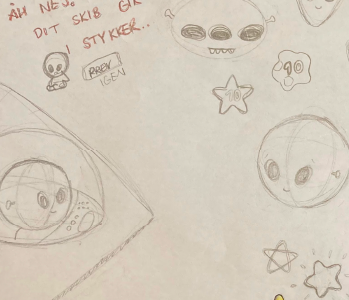 ÅH NEJ.
DIT SKIB GIK
STYKKER..
PRØV
IGEN